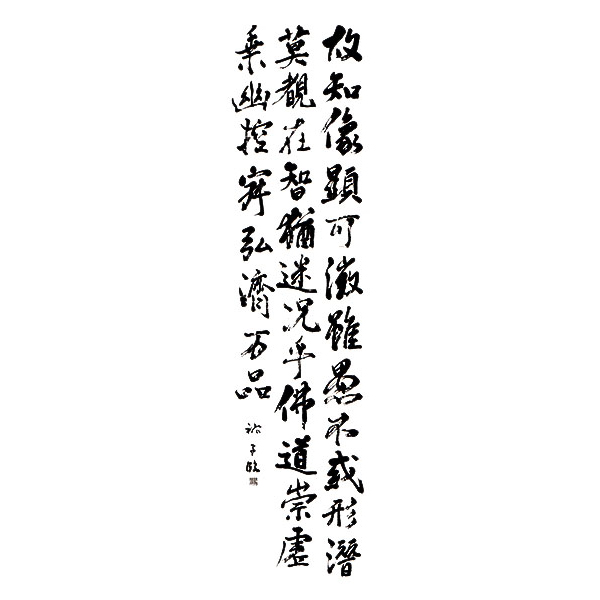 故知像顯可徵雖愚不惑形潛
莫覩在智猶迷況乎佛道崇虛
乗幽控寂弘濟万品